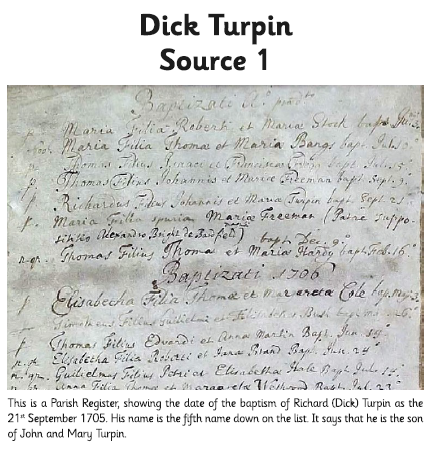 Dick Turpin
Source 1
Baptizati
Maria Filia Roberti et Mariæ Stock bapt.
Maria Filia Thomæ et Mariæ Bangs bapt. July
Thomas Filius et bapt. July
Thomas Filius Johannis et Mariæ Freeman bapt. Sept. 9.
Richardus Filius Johannis et Mariæ Turpin bapt. Sept. 21.
Maria Filia spuria Mariæ Freeman (Patre suppo-
sititio Alexandro Bright de Bardfield) bapt. Dec. 9.
Thomas Filius Thomæ et Mariæ Hardy bapt. Feb. 16.
Baptizati 1706
Elisabetha Filia Thomæ et Margareta Cole bap.
Filius Bush
Thomas Filius Edvardi et Anna Martin Bapt. Jun
Elisabetha Filia et Brand Bapt. Jun. 24
Guilielmus Filius et Elisabetha Hale Bapt. July
Anna Filia Thomæ et Bapt.
This is a Parish Register, showing the date of the baptism of Richard (Dick) Turpin as the
21st September 1705. His name is the fifth name down on the list. It says that he is the son
of John and Mary Turpin.